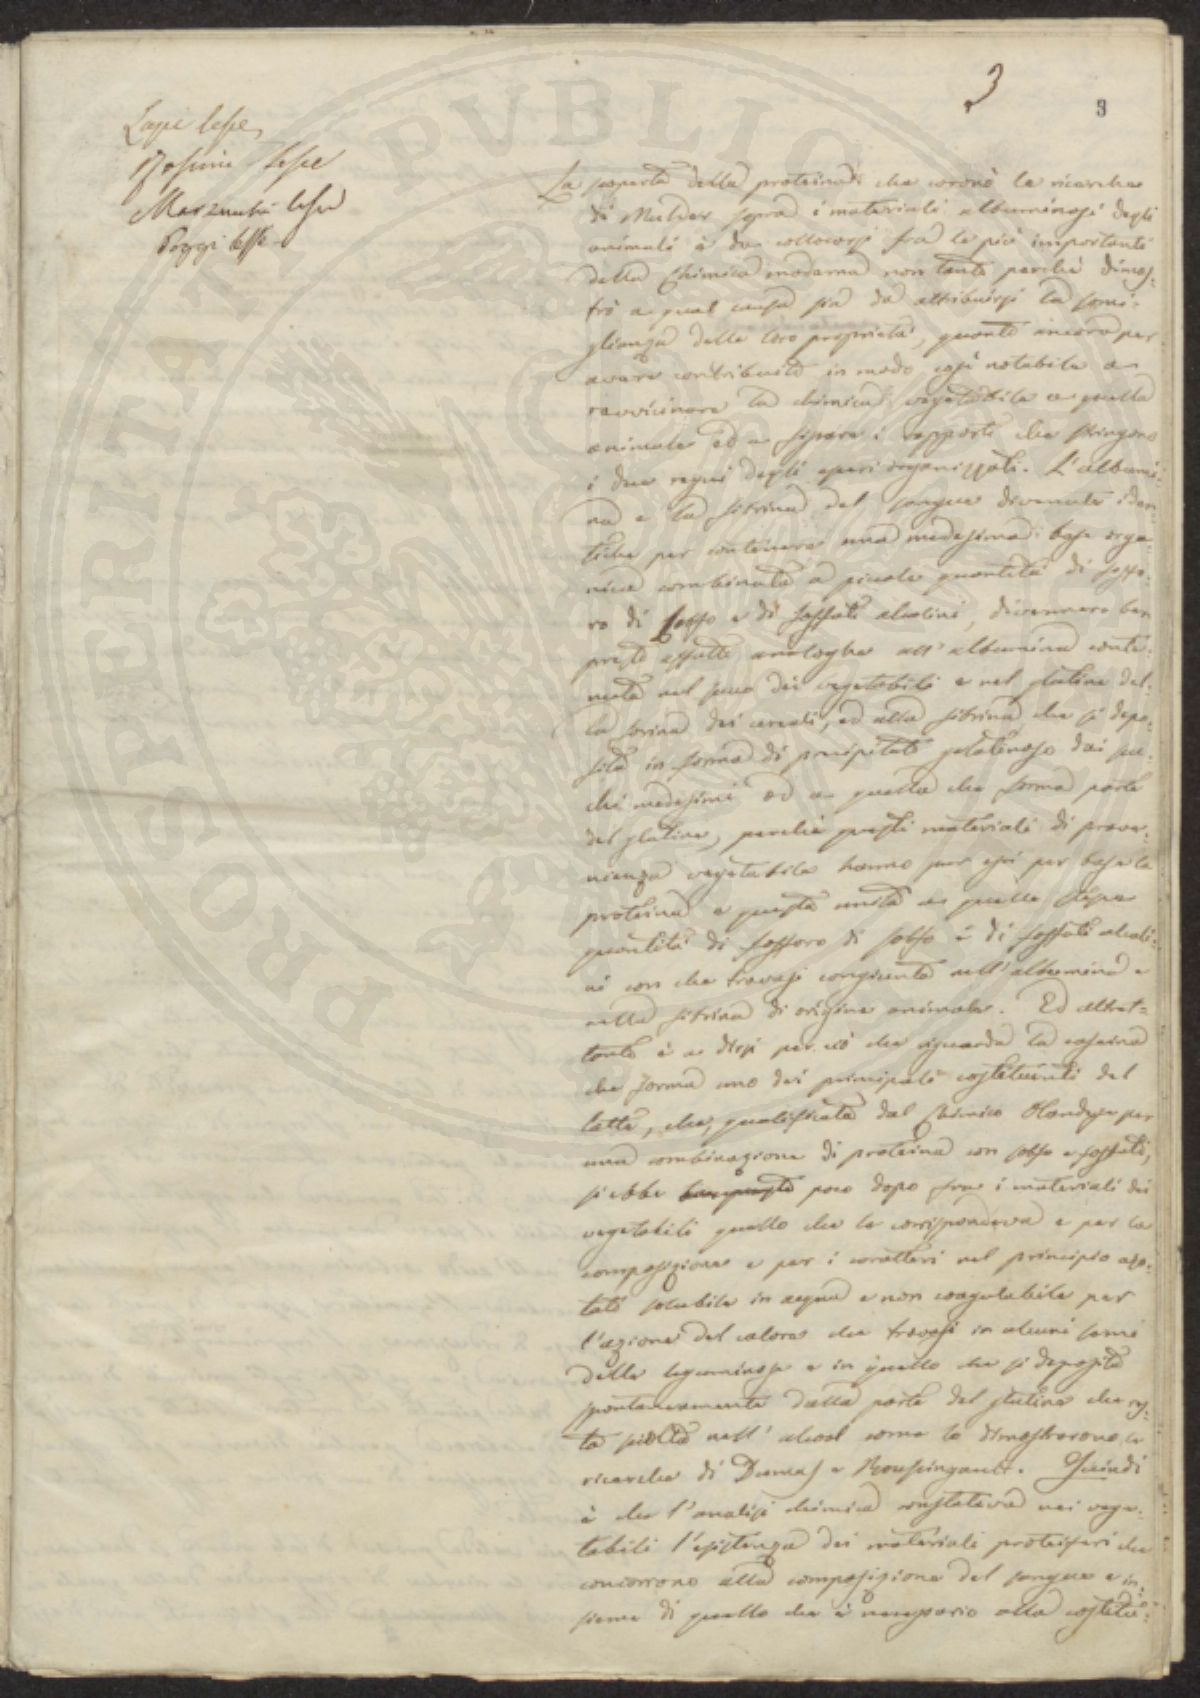 3
3
Lapi lesse
Bosimi lesse
Marzuchi lesse
Poggi lesse
La scoperta della proteina che coronò le ricerche
di Mulder sopra i materiali albuminosi degli
animali è da collocarsi fra le più importanti
della Chimica moderna non tanto perchè dimos-
trò a qual causa sia da attribuirsi la somi-
glianza delle loro proprietà, quanto ancora per
avere contribuito in modo così notabile a
ravvicinare la chimica vegetabile a quella
animale ed a fissare i rapporti che stringono
i due regni degli esseri organizzati. L'albumi-
na e la fibrina del sangue divenute iden-
tiche per contenere una medesima base orga-
nica combinata a piccole quantità di fosfo-
ro di solfo e di fosfati alcalini, divennero ben
presto affatto analoghe all'albumina conte-
nuta nel succo dei vegetabili e nel glutine del-
la farina dei cereali, ed alla fibrina che si depo-
sita in forma di precipitato gelatinoso dai suc-
chi medesimi ed a quella che forma parte
del glutine, perchè questi materiali di prove-
nienza vegetabile hanno pur essi per base la
proteina e questa unita a quelle stesse
quantità di fosforo di solfo e di fosfati alcali-
ni con che trovasi congiunta nell'albumina e
nella fibrina di origine animale. Ed altret-
tanto è a dirsi per ciò che riguarda la caseina
che forma uno dei principali costituenti del
latte, che, qualificata dal Chimico Olandese per
una combinazione di proteina con solfo e fosfati,
si ebbe poco dopo fra i materiali dei
vegetabili quello che le corrispondeva e per la
composizione e per i caratteri nel principio azo-
tato solubile in acqua e non coagulabile per
l'azione del calore che trovasi in alcuni semi
delle leguminose e in quello che si deposita
spontaneamente dalla parte del glutine che res-
ta sciolta nell'alcool come lo dimostrarono le
ricerche di Dumas e Boussingault. Quindi
è che l'analisi chimica constatava nei vege-
tabili l'esistenza dei materiali proteiferi che
concorrono alla composizione del sangue e in-
sieme di quello che è necessario alla costitu-